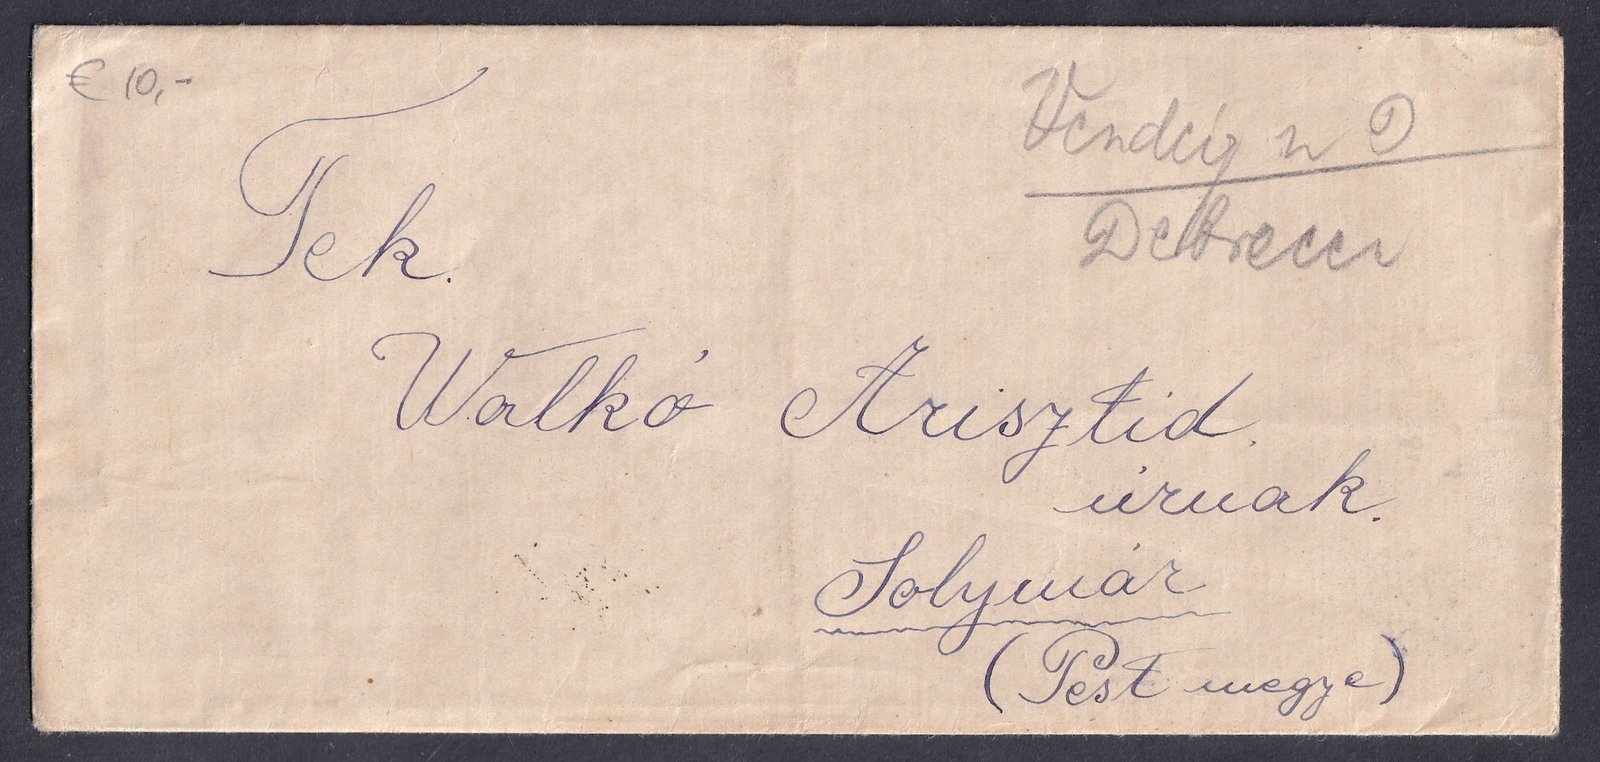 € 10,-
Debrecen
Tek.
Walkó Arisztid
úrnak.
Solymár
(Pest megye)